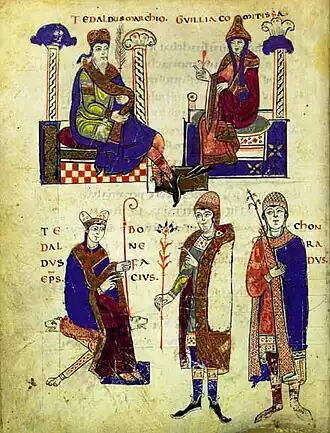 TEDALDUS MARCHIO. GVILLIA COMITISSA
TE
DAL
DVS
EPS.
BO
NE
FA
CIVS.
CHON
RA
DUS.